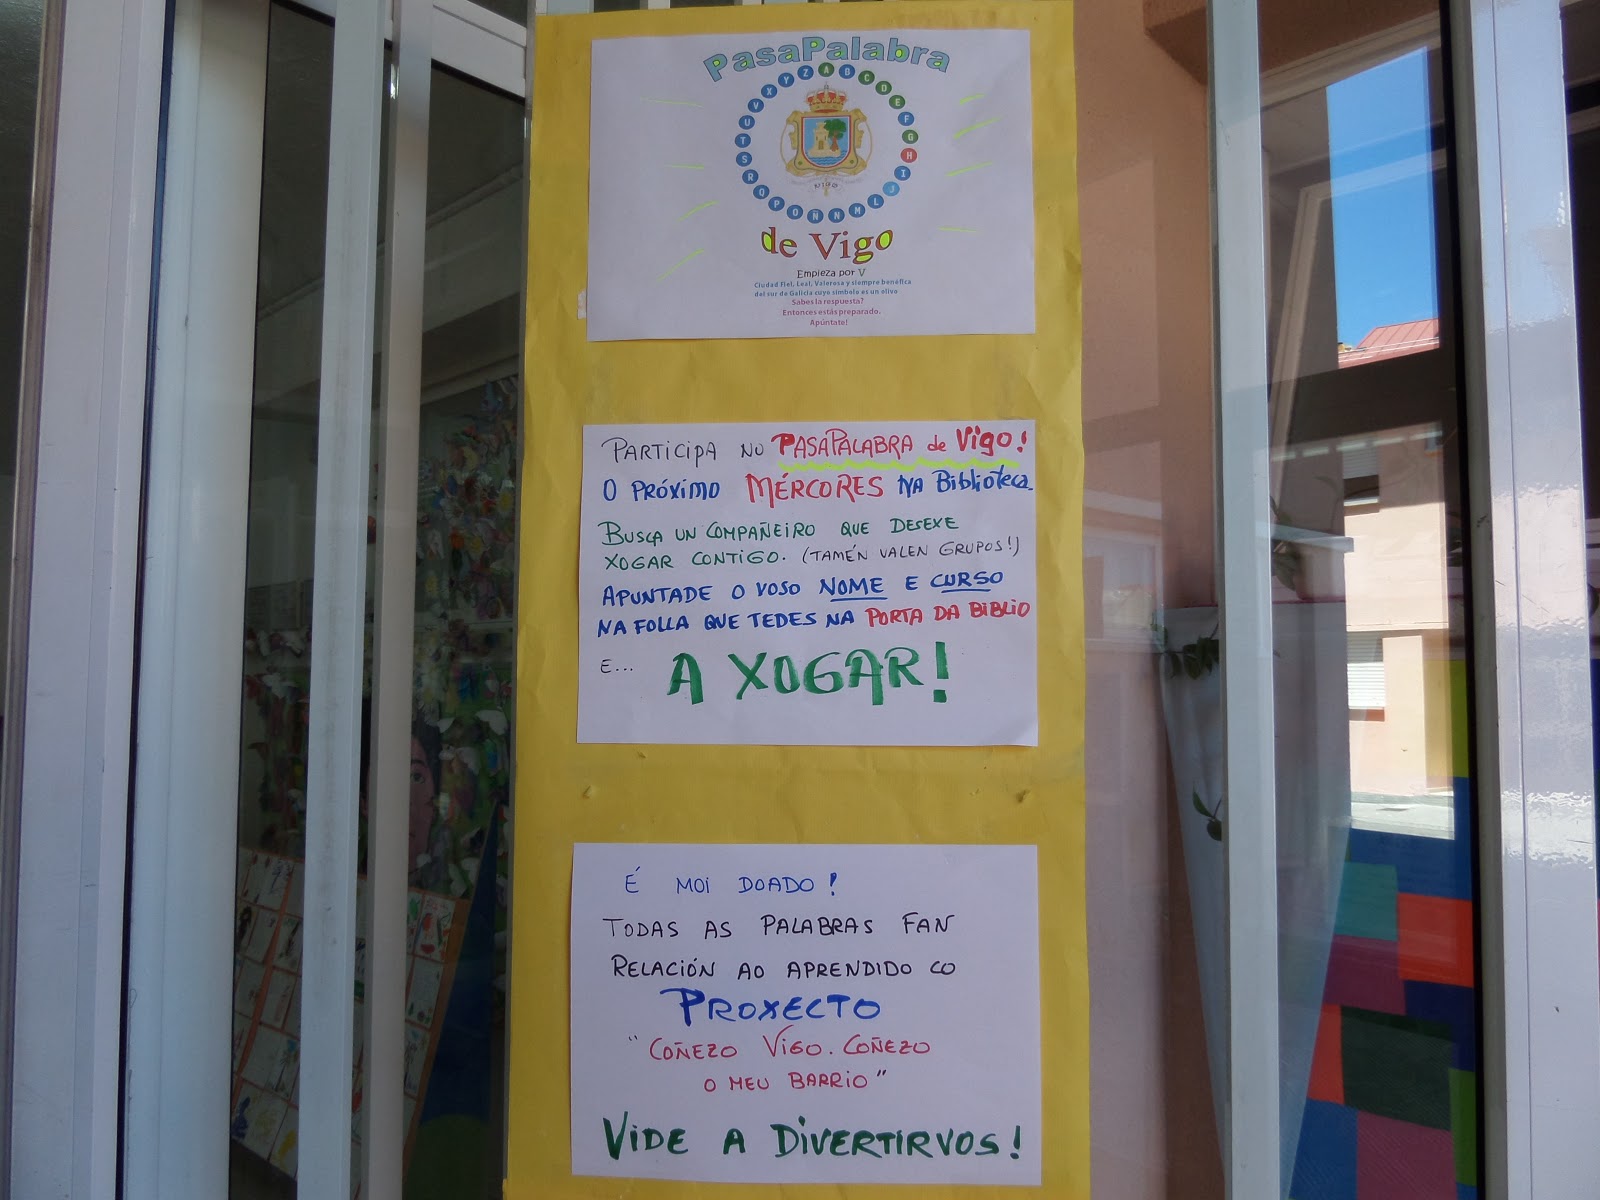 PasaPalabra
A B C D E F G H I J L M N Ñ O P Q R S T U V X Y Z
VIGO
de Vigo
Empieza por V
Ciudad Fiel, Leal, Valerosa y siempre benéfica
del sur de Galicia cuyo símbolo es un olivo
Sabes la respuesta?
Entonces estás preparado.
Apúntate!
PARTICIPA NO PASAPALABRA de Vigo!
O PRÓXIMO MÉRCORES NA Biblioteca.
BUSCA UN COMPAÑEIRO QUE DESEXE
XOGAR CONTIGO. (TAMÉN VALEN GRUPOS!)
APUNTADE O VOSO NOME E CURSO
NA FOLLA QUE TEDES NA PORTA DA BIBLIO
E... A XOGAR!
É MOI DOADO!
TODAS AS PALABRAS FAN
RELACIÓN AO APRENDIDO CO
PROXECTO
"COÑEZO VIGO. COÑEZO
O MEU BARRIO"
VIDE A DIVERTIRVOS!